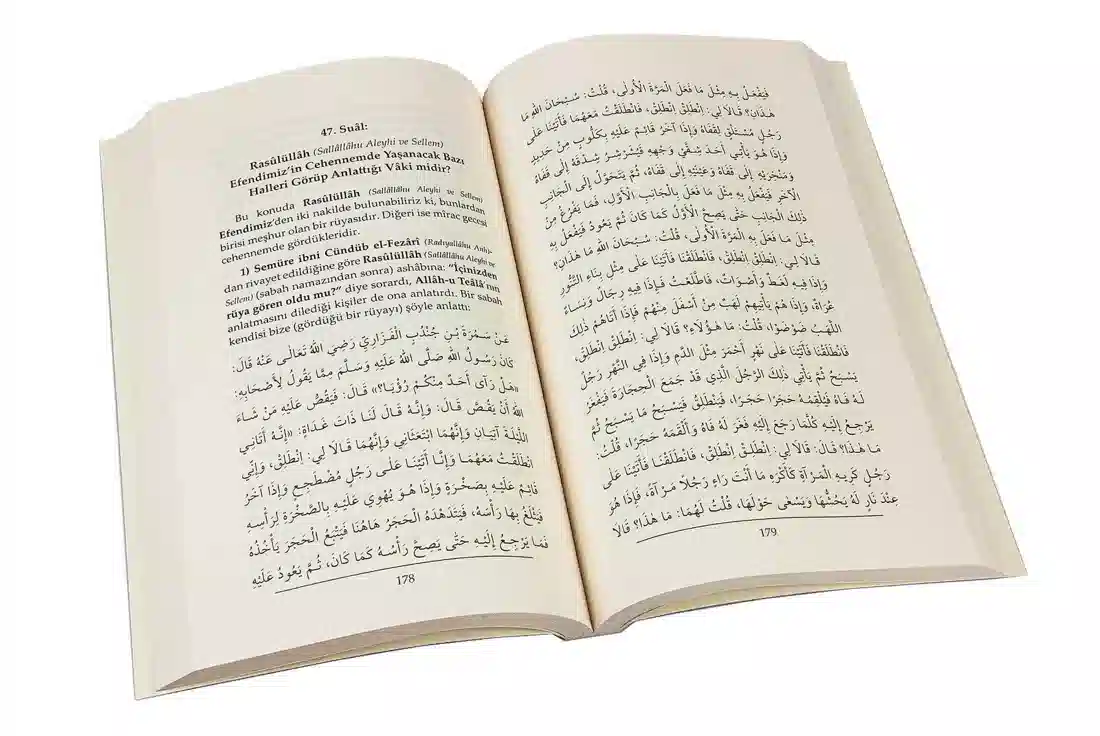 47. Suâl:
Rasûlüllâh (Sallâllâhu Aleyhi ve Sellem)
Efendimiz'in Cehennemde Yaşanacak Bazı
Halleri Görüp Anlattığı Vâki midir?
Bu konuda Rasûlüllâh (Sallâllâhu Aleyhi ve Sellem)
Efendimiz'den iki nakilde bulunabiliriz ki, bunlardan
birisi meşhur olan bir rüyasıdır. Diğeri ise mîrac gecesi
cehennemde gördükleridir.
1) Semüre ibni Cündüb el-Fezârî (Radıyallâhu Anh)-
dan rivayet edildiğine göre Rasûlüllâh (Sallâllâhu Aleyhi ve
Sellem) (sabah namazından sonra) ashâbına: "İçinizden
rüya gören oldu mu?" diye sorardı, Allâh-u Teâlâ'nın
anlatmasını dilediği kişiler de ona anlatırdı. Bir sabah
kendisi bize (gördüğü bir rüyayı) şöyle anlattı:
عَنْ سَمُرَةَ بْنِ جُنْدُبٍ الْفَزَارِيِّ رَضِيَ اللهُ تَعَالَى عَنْهُ قَالَ:
كَانَ رَسُولُ اللهِ صَلَّى اللهُ عَلَيْهِ وَسَلَّمَ مِمَّا يَقُولُ لِأَصْحَابِهِ:
«هَلْ رَأَى أَحَدٌ مِنْكُمْ رُؤْيَا؟» قَالَ: فَيَقُصُّ عَلَيْهِ مَنْ شَاءَ
اللهُ أَنْ يَقُصَّ قَالَ: وَإِنَّهُ قَالَ لَنَا ذَاتَ غَدَاةٍ: «إِنَّهُ أَتَانِي
اللَّيْلَةَ آتِيَانِ وَإِنَّهُمَا ابْتَعَثَانِي وَإِنَّهُمَا قَالَا لِي: اِنْطَلِقْ، وَإِنِّي
انْطَلَقْتُ مَعَهُمَا وَإِنَّا أَتَيْنَا عَلَى رَجُلٍ مُضْطَجِعٍ وَإِذَا آخَرُ
قَائِمٌ عَلَيْهِ بِصَخْرَةٍ وَإِذَا هُوَ يَهْوِي عَلَيْهِ بِالصَّخْرَةِ لِرَأْسِهِ
فَيَثْلَغُ بِهَا رَأْسَهُ، فَيَتَدَهْدَهُ الْحَجَرُ هَاهُنَا فَيَتْبَعُ الْحَجَرَ يَأْخُذُهُ
فَمَا يَرْجِعُ إِلَيْهِ حَتَّى يَصِحَّ رَأْسُهُ كَمَا كَانَ، ثُمَّ يَعُودُ عَلَيْهِ
178
فَيَفْعَلُ بِهِ مِثْلَ مَا فَعَلَ الْمَرَّةَ الْأُولَى، قُلْتُ: سُبْحَانَ اللهِ مَا
هَذَانِ؟ قَالَا لِي: اِنْطَلِقْ اِنْطَلِقْ، فَانْطَلَقْتُ مَعَهُمَا فَأَتَيْنَا عَلَى
رَجُلٍ مُسْتَلْقٍ لِقَفَاهُ وَإِذَا آخَرُ قَائِمٌ عَلَيْهِ بِكَلُّوبٍ مِنْ حَدِيدٍ
وَإِذَا هُوَ يَأْتِي أَحَدَ شِقَّيْ وَجْهِهِ فَيُشَرْشِرُ شِدْقَهُ إِلَى قَفَاهُ
وَمَنْخِرَيْهِ إِلَى قَفَاهُ وَعَيْنَيْهِ إِلَى قَفَاهُ، ثُمَّ يَتَحَوَّلُ إِلَى الْجَانِبِ
الْآخَرِ فَيَفْعَلُ بِهِ مِثْلَ مَا فَعَلَ بِالْجَانِبِ الْأَوَّلِ، فَمَا يَفْرُغُ مِنْ
ذَلِكَ الْجَانِبِ حَتَّى يَصِحَّ الْأَوَّلُ كَمَا كَانَ ثُمَّ يَعُودُ فَيَفْعَلُ بِهِ
مِثْلَ مَا فَعَلَ بِهِ الْمَرَّةَ الْأُولَى، قُلْتُ: سُبْحَانَ اللهِ مَا هَذَانِ؟
قَالَا لِي: اِنْطَلِقْ اِنْطَلِقْ، فَانْطَلَقْنَا فَأَتَيْنَا عَلَى مِثْلِ بِنَاءِ التَّنُّورِ
وَإِذَا فِيهِ لَغَطٌ وَأَصْوَاتٌ، فَاطَّلَعْتُ فَإِذَا فِيهِ رِجَالٌ وَنِسَاءٌ
عُرَاةٌ، وَإِذَا هُمْ يَأْتِيهِمْ لَهَبٌ مِنْ أَسْفَلَ مِنْهُمْ فَإِذَا أَتَاهُمْ ذَلِكَ
اللَّهَبُ ضَوْضَوْا، قُلْتُ: مَا هَؤُلَاءِ؟ قَالَا لِي: اِنْطَلِقْ اِنْطَلِقْ،
فَانْطَلَقْنَا فَأَتَيْنَا عَلَى نَهَرٍ أَحْمَرَ مِثْلِ الدَّمِ وَإِذَا فِي النَّهْرِ رَجُلٌ
يَسْبَحُ ثُمَّ يَأْتِي ذَلِكَ الرَّجُلُ الَّذِي قَدْ جَمَعَ الْحِجَارَةَ فَيَفْغَرُ
لَهُ فَاهُ فَيُلْقِمُهُ حَجَرًا حَجَرًا، فَيَنْطَلِقُ فَيَسْبَحُ مَا يَسْبَحُ ثُمَّ
يَرْجِعُ إِلَيْهِ كُلَّمَا رَجَعَ إِلَيْهِ فَغَرَ لَهُ فَاهُ وَأَلْقَمَهُ حَجَرًا، قُلْتُ:
مَا هَذَا؟ قَالَ: قَالَا لِي: اِنْطَلِقْ اِنْطَلِقْ، فَانْطَلَقْنَا فَأَتَيْنَا عَلَى
رَجُلٍ كَرِيهِ الْمَرْآةِ كَأَكْرَهِ مَا أَنْتَ رَاءٍ رَجُلًا مَرْآةً، فَإِذَا هُوَ
عِنْدَ نَارٍ لَهُ يَحُشُّهَا وَيَسْعَى حَوْلَهَا، قُلْتُ لَهُمَا: مَا هَذَا؟ قَالَا
179